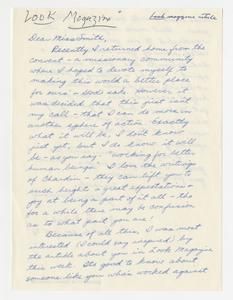 Look Magazine
Look magazine article
Dear Miss Smith,
Recently I returned home from the
convent - a missionary community
where I hoped to devote myself to
making this world a better place
for ours + God's sake. However, it
was decided that this just isn't
my call - that I can do more in
another sphere of action. Exactly
what it will be, I don't know
just yet, but I do know it will
be - as you say - "working for better
human beings." I love the writings
of Chardin - they can lift you to
such heights + great expectations +
joy at being a part of it all - tho
for a while there may be confusion
as to what part you are!
Because of all this, I was most
interested (I could say inspired) by the
article about you in Look Magazine
this week. It's good to know about
someone like you who's worked against